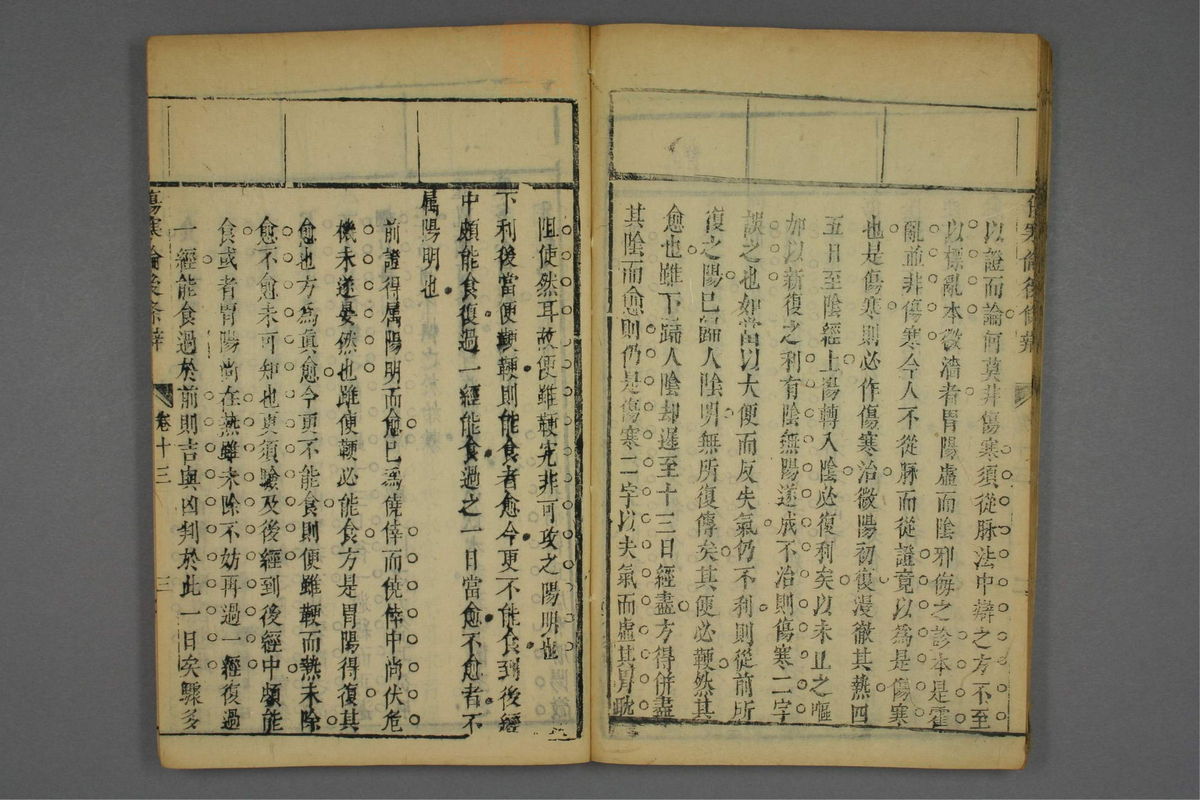 傷寒論後條辨
以證而論何莫非傷寒須從脉法中辯之方不至
以標亂本微濇者胃陽虛而陰邪傷之診本是霍
亂並非傷寒今人不從脉而從證竟以爲是傷寒
也是傷寒則必作傷寒治微陽初復漫徹其熱四
五日至陰經上陽轉入陰必復利矣以未止之嘔
加以新復之利有陰無陽遂成不治則傷寒二字
誤之也如當以大便而反失氣仍不利則從前所
復之陽已歸入陰明無所復傳矣其便必鞕然其
愈也雖下歸入陰却遲至十三日經盡方得併盡
其陰而愈則仍是傷寒二字以失氣而虛其胃
阻使然耳故便雖鞕究非可攻之陽明也
下利後當便鞕鞕則能食者愈今更不能食到後經
中頗能食復過一經能食過之一日當愈不愈者不
属陽明也
前證得属陽明而愈已爲僥倖而僥倖中尚伏危
機未遂晏然也雖便鞕必能食方是胃陽得復其
愈也方爲眞愈今更不能食則便雖鞕而熱未除
愈不愈未可知也更須驗及後經到後經中頗能
食或者胃陽尚在熱雖未除不妨再過一經復過
一經能食過於前則吉與凶判於此一日矣驟多
傷寒論後條辨
卷十三
三